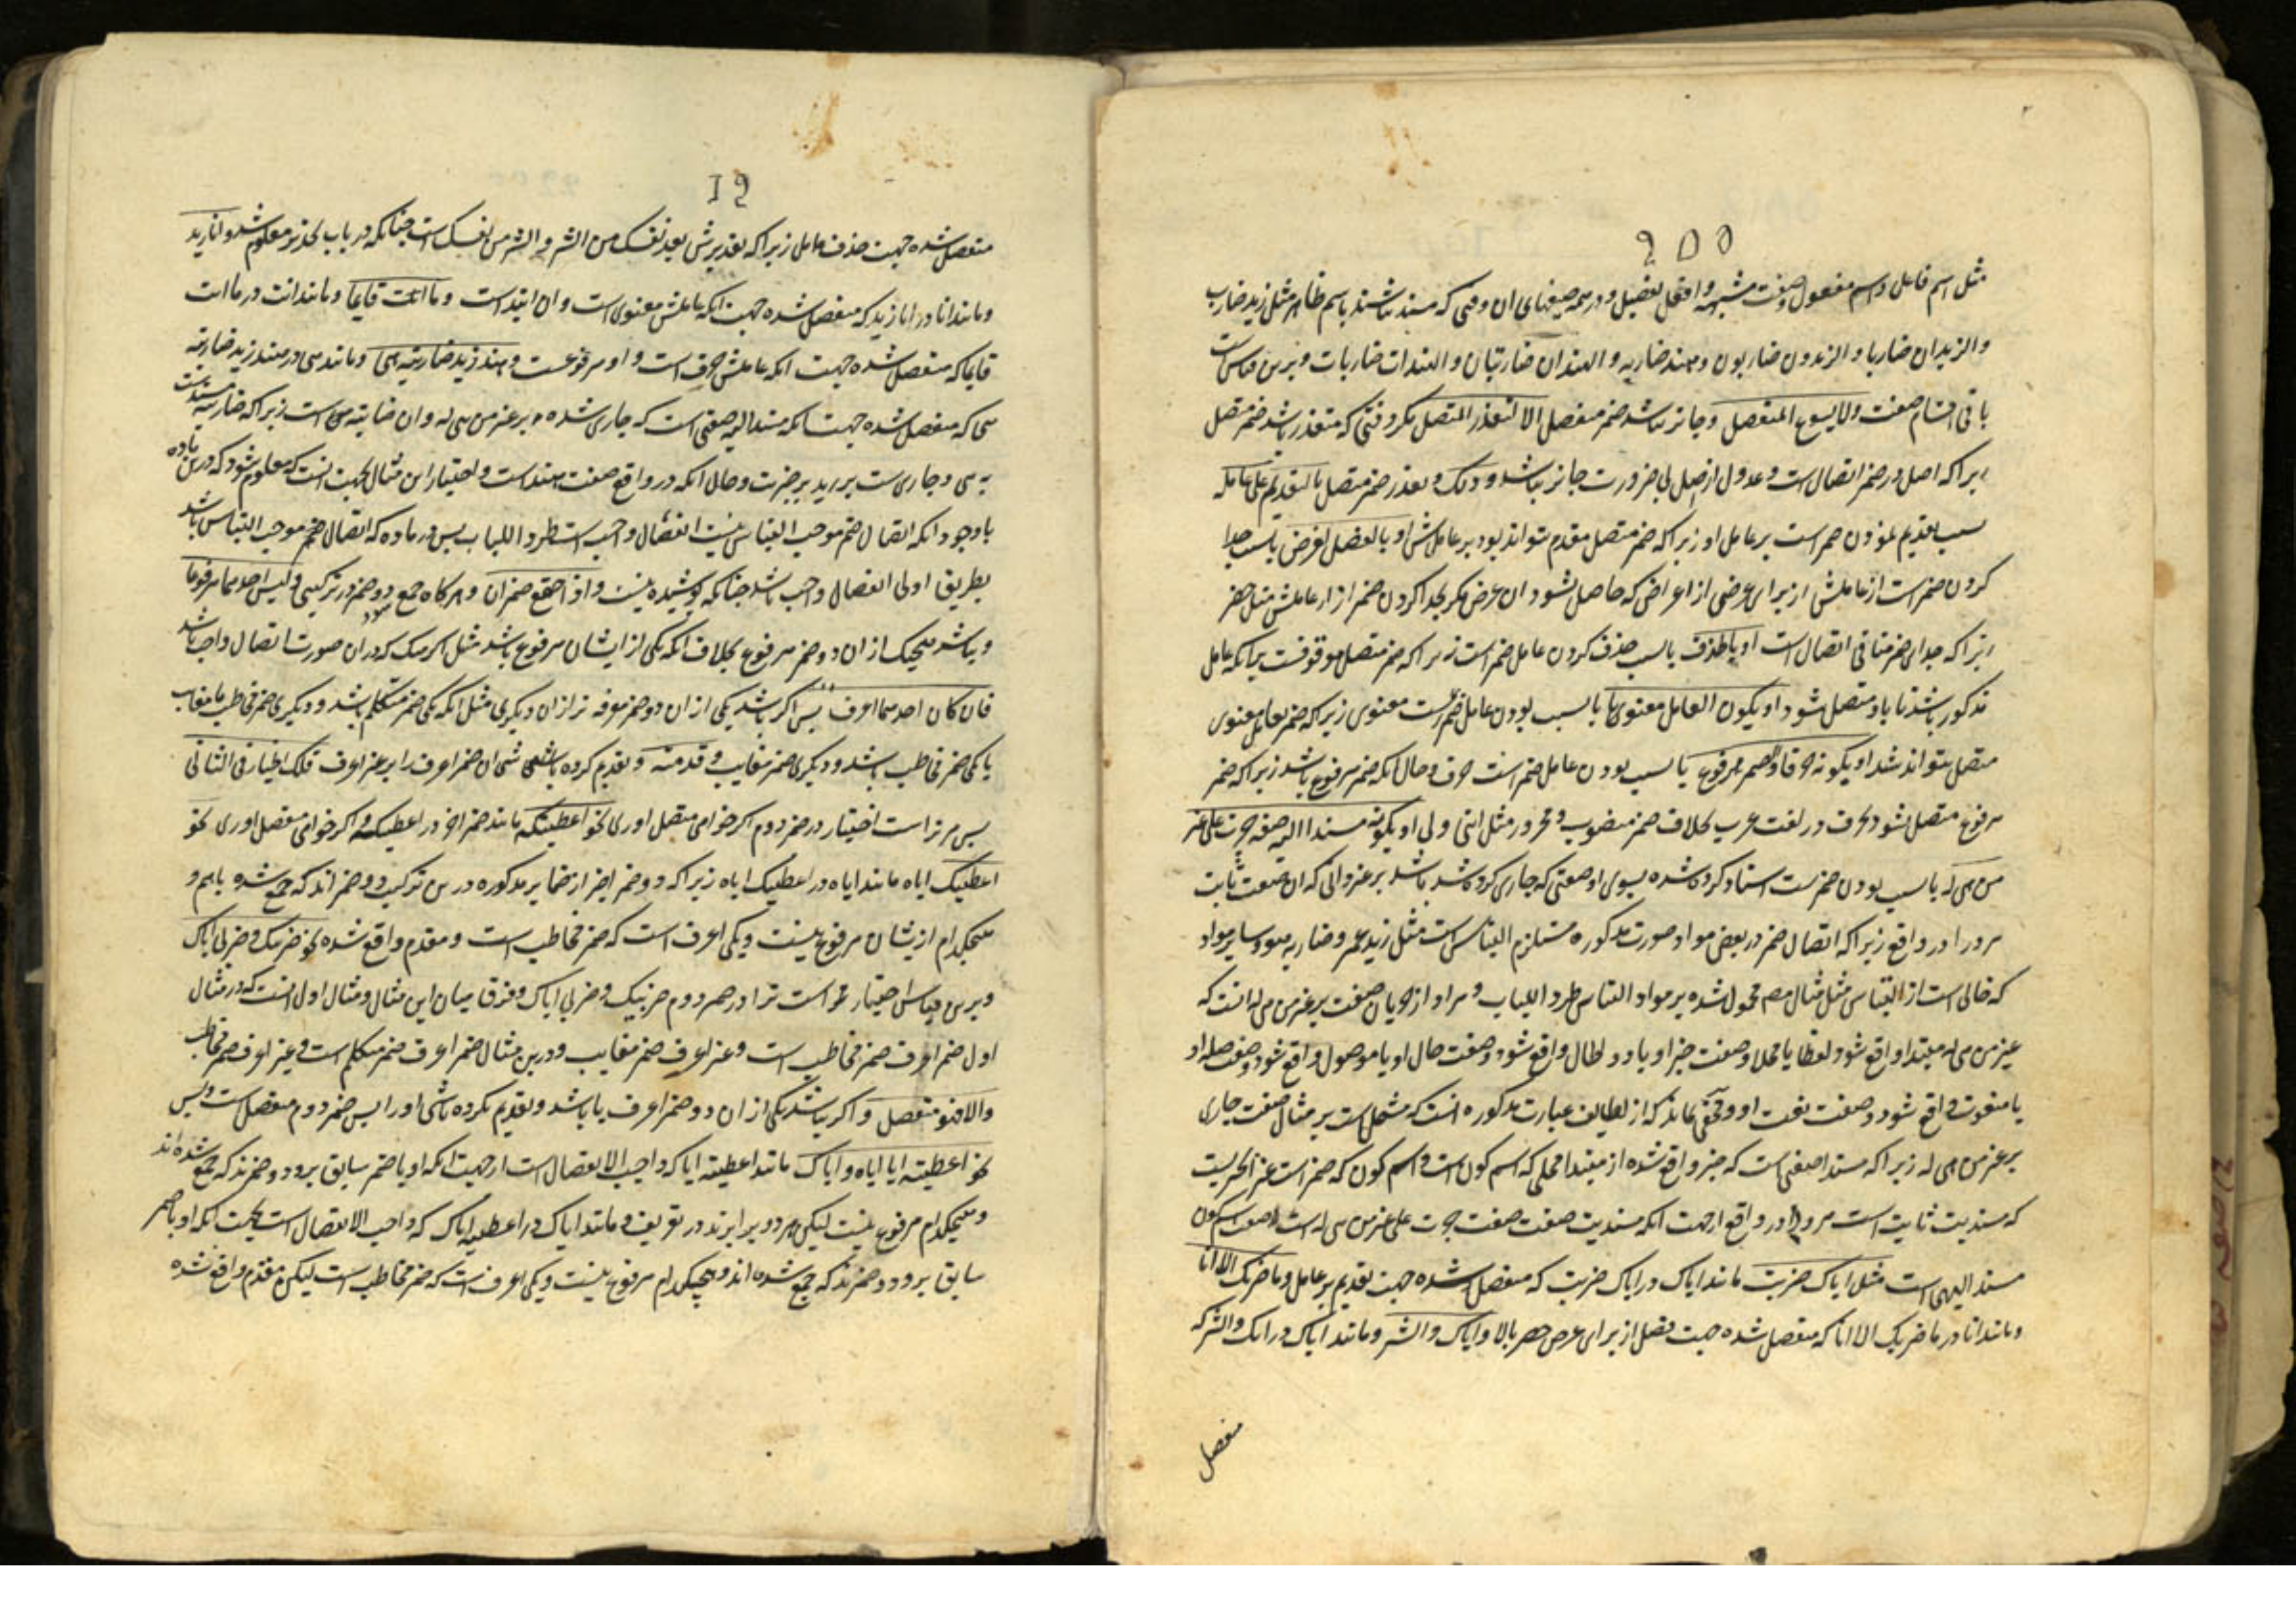 مثل اسم فاعل و اسم مفعول و صفت مشبهه و افعل تفضیل و در همه صیغهای آن وقتی که مسند نباشند باسم ظاهر مثل زید ضارب
والزیدان ضاربان والزیدون ضاربون و هند ضاربه والهندان ضاربتان والهندات ضاربات وبرین قیاس
باقی اقسام صفت ولا یسوع المنفصل و جایز نباشد ضمیر منفصل الا لتعذر المتصل مگر وقتی که متعذر باشد ضمیر متصل
زیرا که اصل در ضمیر اتصال است و عدول از اصل بی ضرورت جایز نباشد و ذلک و تعذر ضمیر متصل بالتقدیم علی عامله
بسبب تقدیم نمودن ضمیر است بر عامل او زیرا که ضمیر متصل مقدم نتواند بود بر عاملش او بالفصل لغرض یا بسبب جدا
کردن ضمیر است از عاملش از برای غرضی از اغراض که حاصل نشود آن غرض مگر بجدا کردن ضمیر از عاملش مثل حصر
زیرا که جدای ضمیر منافی اتصال است او بالحذف یا بسبب حذف کردن عامل ضمیر است زیرا که ضمیر متصل موقوفست برآنکه عامل
مذکور باشد تا باو متصل شود او یکون العامل معنویا یا بسبب بودن عامل ضمیر است معنوی زیرا که ضمیر بعامل معنوی
متصل نتواند شد او یکونه حرفا والضمیر مرفوع یا بسبب بودن عامل ضمیر است حرف و حال آنکه ضمیر مرفوع باشد زیرا که ضمیر
مرفوع متصل نشود بحرف در لغت عرب بخلاف ضمیر منصوب و مجرور مثل اننی ولی او بکونه مسندا الیه صفة جرت علی غیر
من هی له یا بسبب بودن ضمیرست اسناد کرده شده بسوی او صفتی که جاری کرده شد باشد بر غیر آنی که آن صفت ثابت
مرورا در واقع زیرا که اتصال ضمیر در بعض مواد صورت مذکوره مستلزم التباس است مثل زید عمرو ضاربه هو و سایر مواد
که خالی است از التباس مثل مثال مصر محمول شده بر مواد التباس طردا للباب و مراد از جریان صفت بر غیر من هی له انست که
غیر من هی له مبتدا واقع شود لفظا یا محلا و صفت خبر او یا ذو الحال واقع شود و صفت حال او یا موصول واقع شود و صفت صله او
یا منعوت واقع شود و صفت نعت او و مخفی نماند که از لطایف عبارت مذکوره انست که مشتمل است بر مثال صفت جاری
بر غیر من هی له زیرا که مسندا صفتی است که خبر واقع شده از مبتدا محلی که اسم کون است و اسم کون که ضمیر است غیر آنکسیست
که مسندیت ثابت است مرورا در واقع از جهت آنکه مسندیت صفت صفت جرت علی غیر من هی له است نه صفت اسم کون
مسند الیهی است مثل ایاک ضربت مانند ایاک در ایاک ضربت که منفصل شده جهت تقدیم بر عامل و ما ضربک الا انا
و مانند انا در ما ضربک الا انا که منفصل شده جهت فصل از برای غرض حصر بالا و ایاک والشر و مانند ایاک در ایاک والشر که
منفصل
منفصل شده جهت حذف عامل زیرا که تقدیرش بعد نفسک من الشر و الشر من نفسک است چنانکه در باب تحذیر معلوم شد و انا زید
و مانند انا در انا زید که منفصل شده جهت آنکه عاملش معنوی است و آن ابتداست و ما انت قایما و مانند انت در ما انت
قایما که منفصل شده جهت آنکه عاملش حرف است و او مرفوعست و هند زید ضاربته هی و مانند هی در هند زید ضاربته
هی که منفصل شده جهت آنکه مسند الیه صفتی است که جاری شده بر غیر من هی له و آن ضاربته است زیرا که ضاربته مسندست
به هی و جاریست بر زید بر خبریت و حال آنکه در واقع صفت هندست و اختیار این مثال بجهت آنست که معلوم شود که درین ماده
با وجود آنکه اتصال ضمیر موجب التباس نیست انفصال واجب است طردا للباب پس در ماده که اتصال ضمیر موجب التباس باشد
بطریق اولی انفصال واجب باشد چنانکه پوشیده نیست و اذا اجتمع ضمیران و هرگاه جمع شود دو ضمیر در ترکیبی و لیس احدهما مرفوعا
و نباشد هیچیک از آن دو ضمیر مرفوع بخلاف آنکه یکی از ایشان مرفوع باشد مثل اکرمتک که در آن صورت اتصال واجب باشد
فان کان احدهما اعرف پس اگر باشد یکی از آن دو ضمیر معرفه تر از آن دیگری مثل آنکه یکی ضمیر متکلم باشد و دیگری ضمیر مخاطب یا مغایب
یا یکی ضمیر مخاطب باشد و دیگری ضمیر مغایب و قدمته و تقدیم کرده باشی آن ضمیر اعرف را بر غیر اعرف فلک الخیار فی الثانی
پس مر تراست اختیار در ضمیر دوم اگر خواهی متصل اوری نحو اعطیتکه مانند ضمیر آخر در اعطیتکه و اگر خواهی منفصل اوری نحو
اعطیتک ایاه مانند ایاه در اعطیتک ایاه زیرا که دو ضمیر اخیر از ضمایر مذکوره درین ترکیب دو ضمیراند که جمع شده باهم و
هیچکدام از ایشان مرفوع نیست و یکی اعرف است که ضمیر مخاطب است و مقدم واقع شده نحو ضربیک و ضربی ایاک
و برین قیاس اختیار مراست ترا در ضمیر دوم ضربیک و ضربی ایاک و فرق میان این مثال و مثال اول آنست که در مثال
اول ضمیر اعرف ضمیر مخاطب است و غیر اعرف ضمیر مغایب و درین مثال ضمیر اعرف ضمیر متکلم است و غیر اعرف ضمیر مخاطب
والا فهو منفصل و اگر نباشد یکی از آن دو ضمیر اعرف یا باشد و تقدیم نکرده باشی او را پس ضمیر دوم منفصل است و بس
نحو اعطیته ایاه و ایاک مانند اعطیته ایاک واجب الانفصال است از جهت آنکه او با ضمیر سابق برو دو ضمیرند که جمع شده‌اند
و هیچکدام مرفوع نیست لیکن هر دو برابرند در تعریف و مانند ایاک در اعطیته ایاک که واجب الانفصال است بجهت آنکه او با ضمیر
سابق برو دو ضمیرند که جمع شده‌اند و هیچکدام مرفوع نیست و یکی اعرف است که ضمیر مخاطب است لیکن مقدم واقع شده